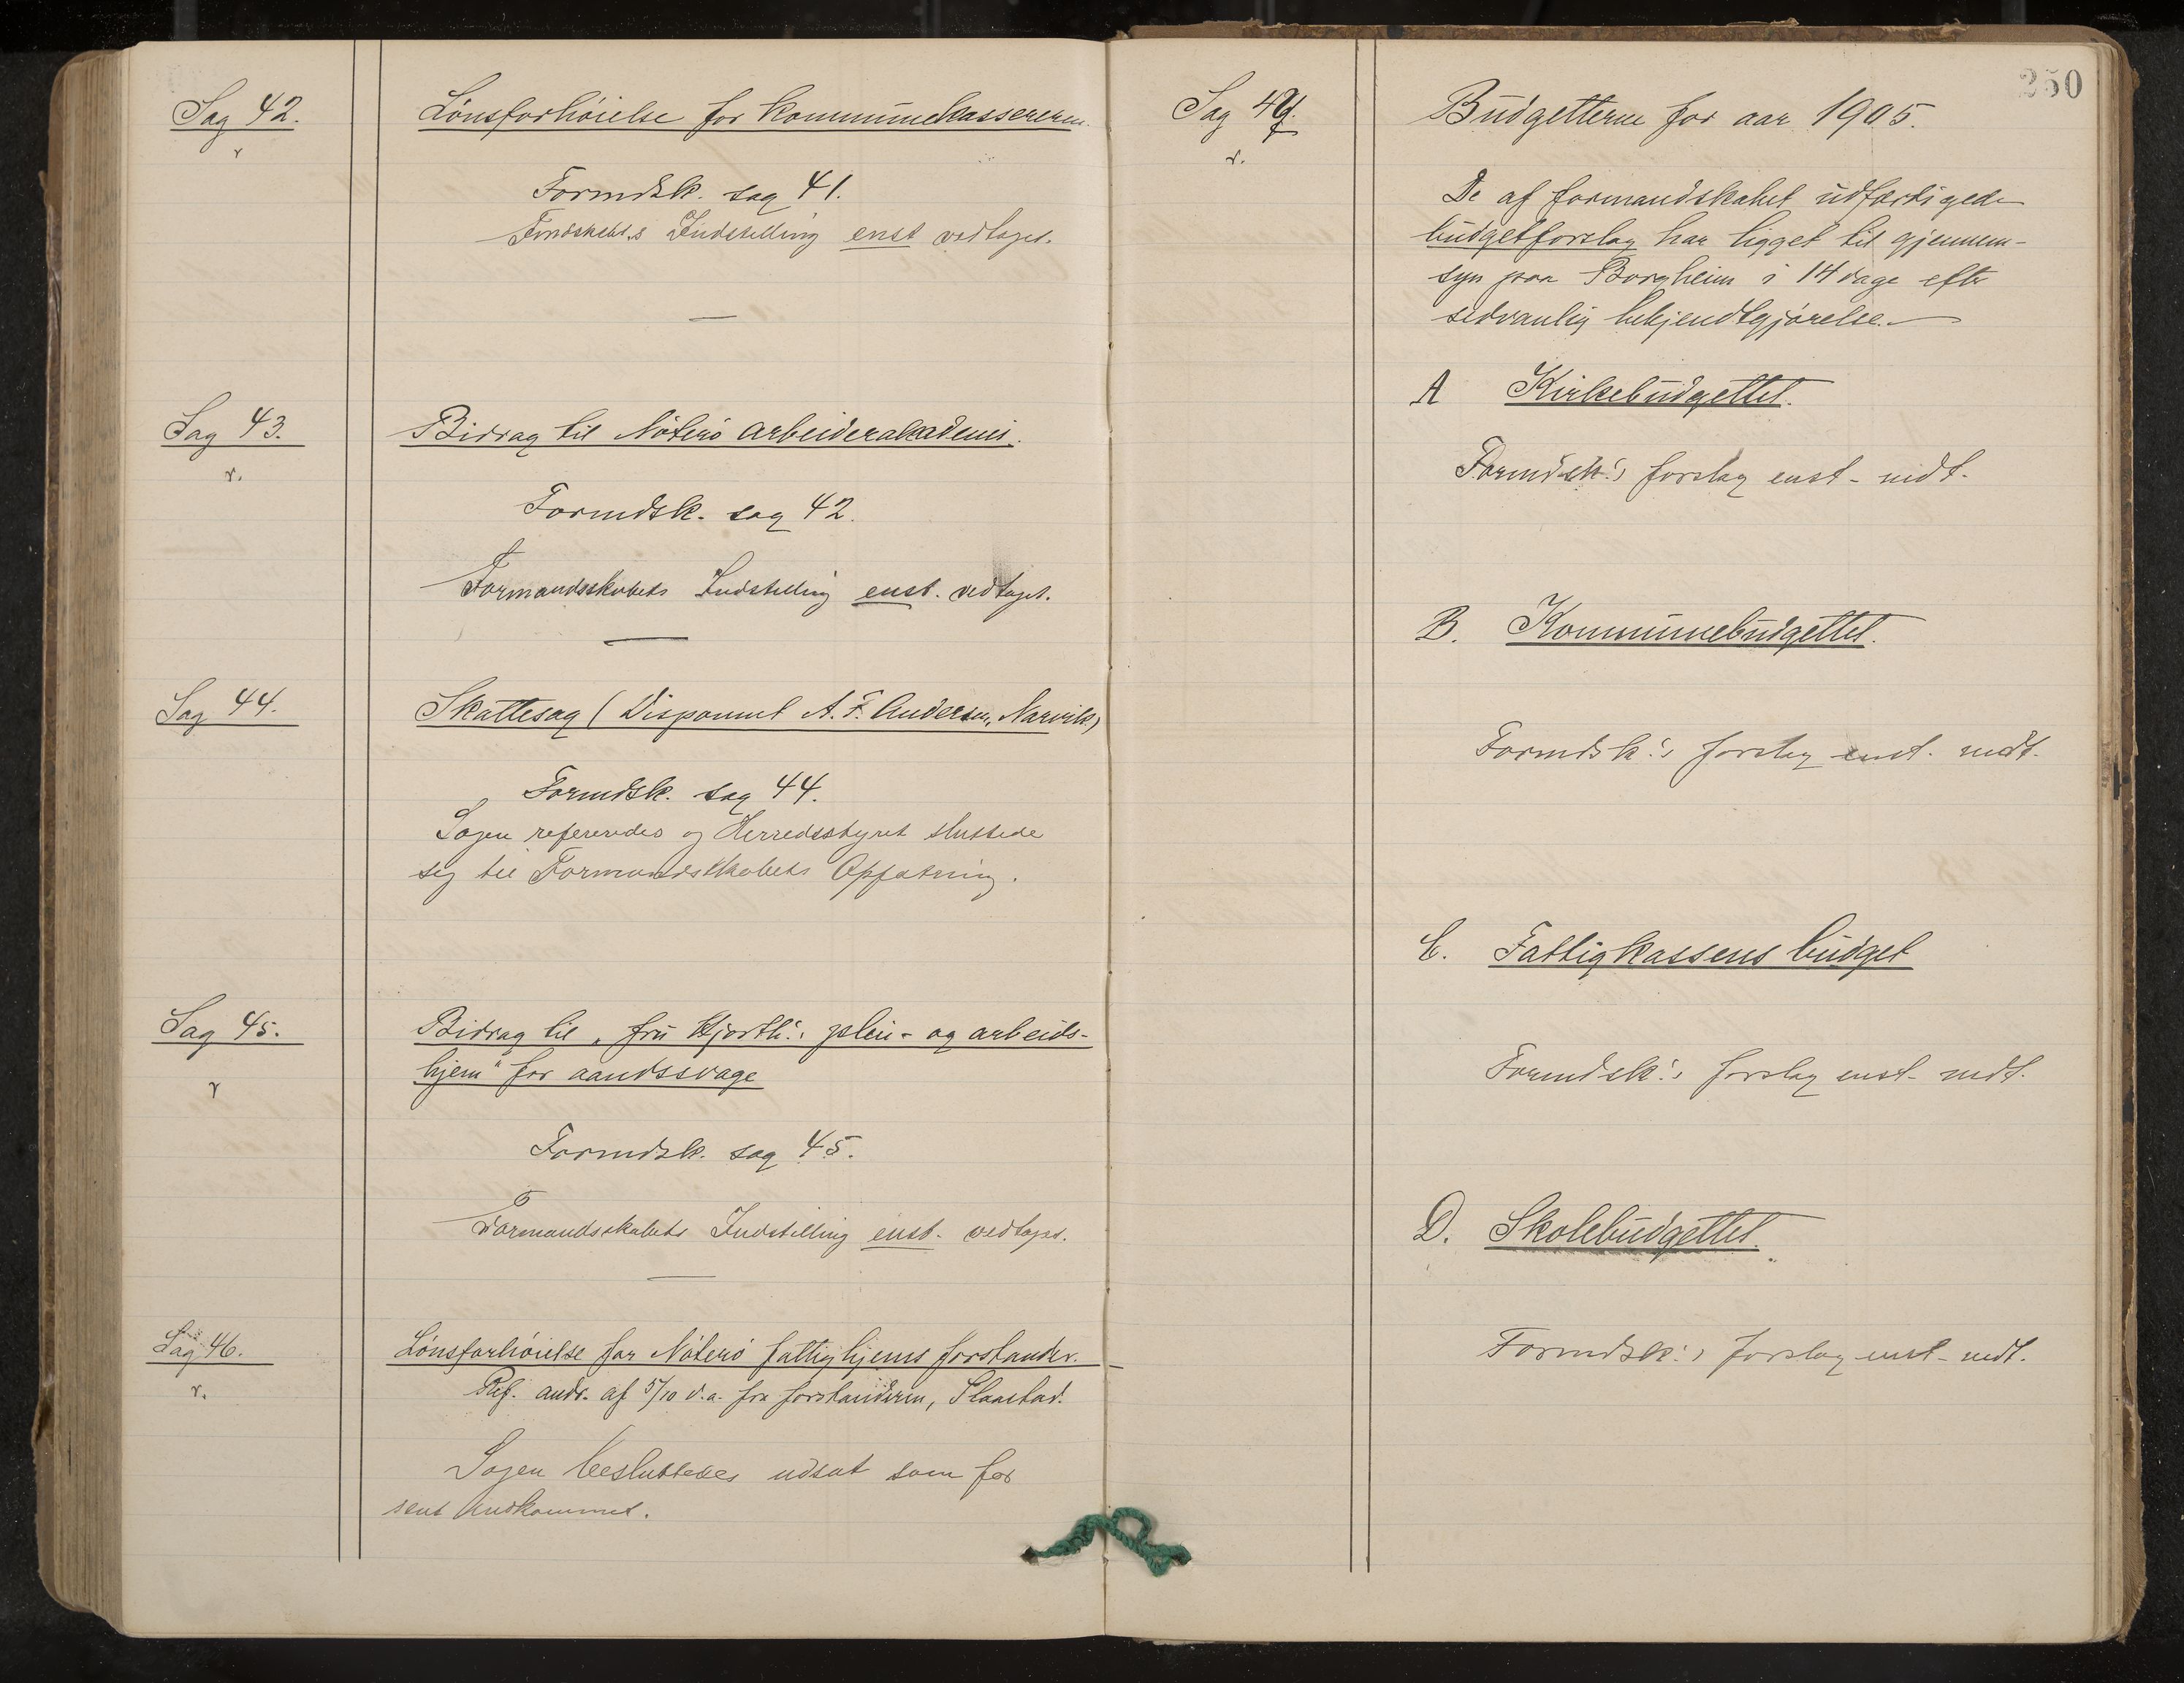 Sag 42.
r
Lönsforhöielse for kommunekassereren.
Formdsk. sag 41.
Fmdskabs Indstilling enst vedtaget.
Sag 43.
r.
Bidrag til Nöterö arbeiderakademi.
Formdsk. sag 42.
Formandsskabets Indstilling enst. vedtaget.
Sag 44.
Skattesag (Disponent A. F. Andersen, Narvik.)
Formdsk. sag 44.
Sagen refereredes og Herredsstyret sluttede
sig til Formandsskabets Opfatning.
Sag 45.
r
Bidrag til „fru Hjorth's pleie- og arbeids-
hjem" for aandssvage
Formdsk. sag 45.
Formandsskabets Indstilling enst. vedtaget.
Sag 46.
r.
Lönsforhöielse for Nöterö fattighjems forstander.
Ref. andr. af 5/10 d.a. fra forstanderen, Slaastad.
Sagen besluttedes udsat som for
sent indkommet.
250
Sag 47.
r.
Budgetterne for aar 1905.
De af formandskabet udfærdigede
budgetforslag har ligget til gjennem-
syn paa Borgheim i 14 dage efter
sedvanlig bekjendtgjörelse.
A Kirkebudgettet.
Formdsk's forslag enst- vedt.
B. Kommunebudgettet.
Formdsk's forslag enst. vedt.
C. Fattigkassens budget
Formdsk's forslag enst- vedt.
D. Skolebudgettet.
Formdsk's forslag enst- vedt.